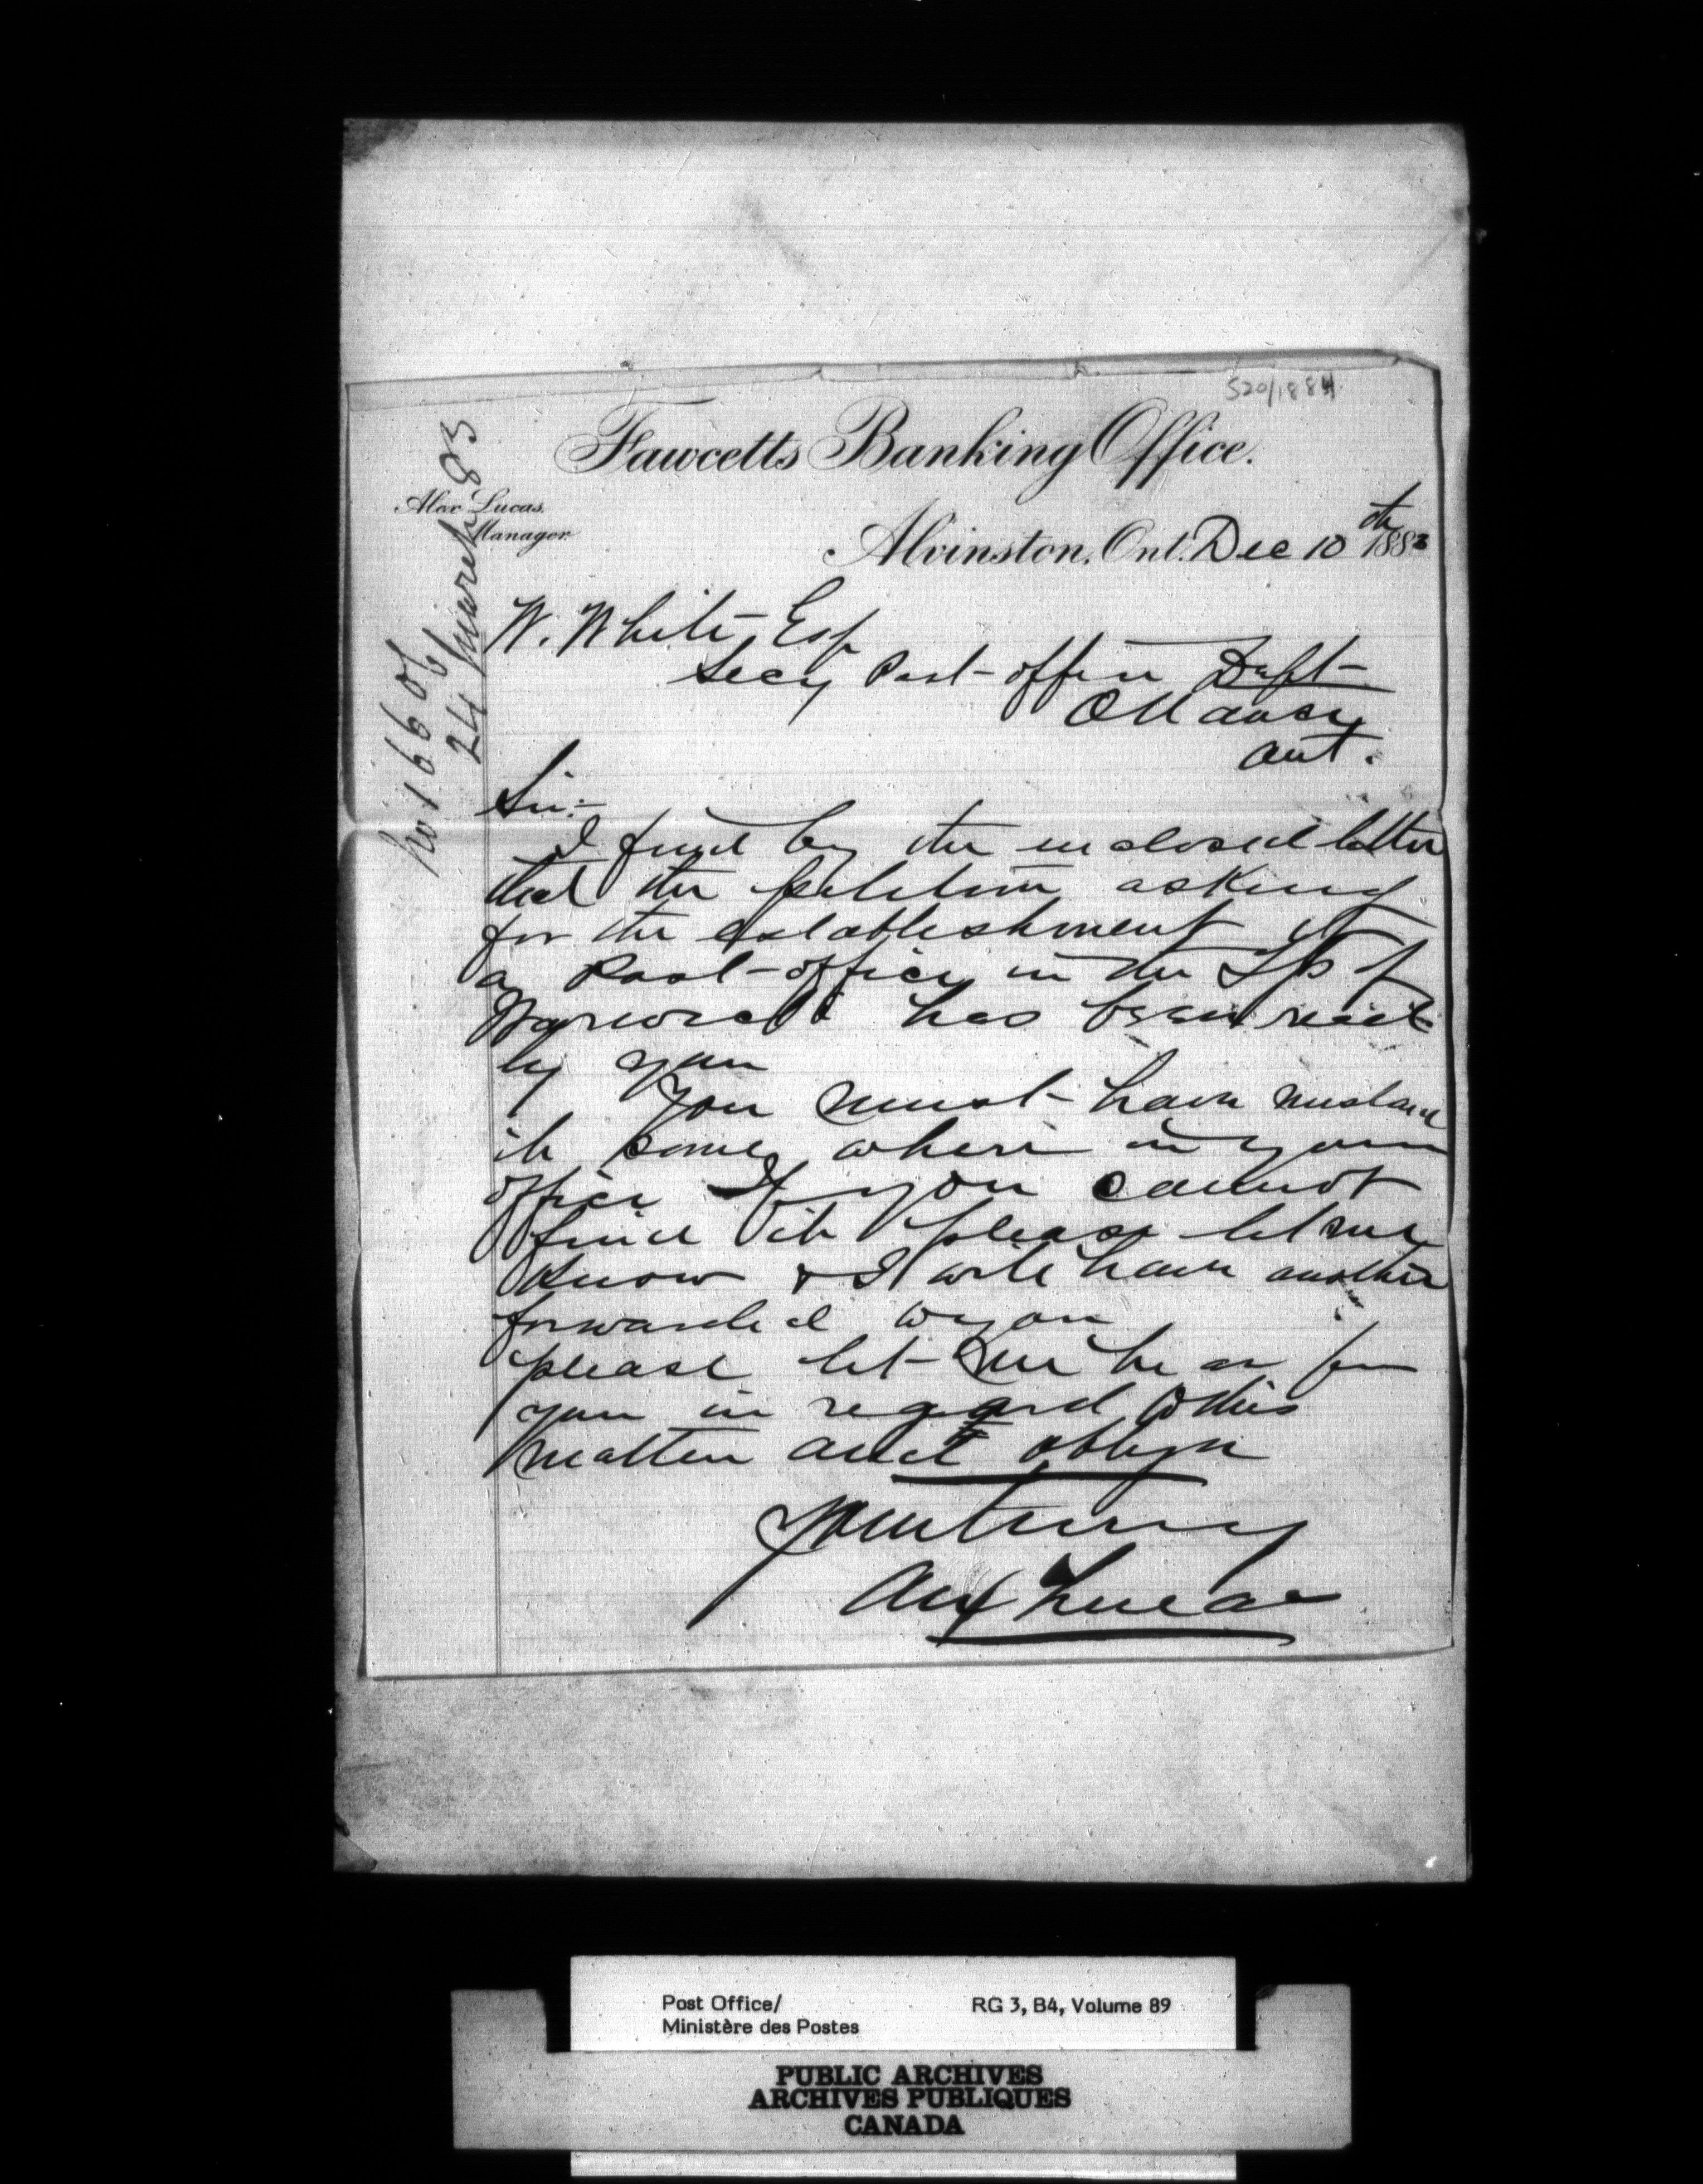 520/1884
Fawcetts Banking Office.
Alex Lucas,
Manager.
Alvinston, Ont. Dec 10th 1883
No 16606
24 March 83
W. White, Esq
Secy Post-office Dept-
Ottawa
Ont.
Sir:-
I find by the enclosed letter
that the petition asking
for the establishment of
a Post-office in the Tp of
Warwick has been
by you
You must have mislaid
it some where in your
office If you cannot
find it please let me
know & I will have another
forwarded to you
please let me hear from
you in regard to this
matter and oblige
Yours truly
Alex Lucas
Post Office/
Ministère des Postes
RG 3, B4, Volume 89
PUBLIC ARCHIVES
ARCHIVES PUBLIQUES
CANADA